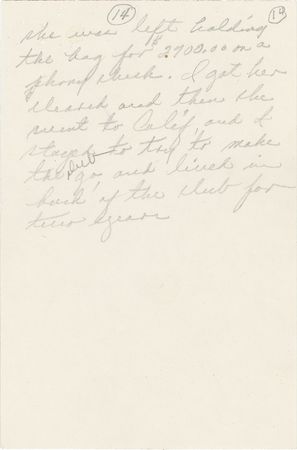 14 14
she was left holding
the bag for $2700.00 on a
phony check. I got her
cleared and then she
went to Calif and I
stayed to try to make
the club go and lived in
back of the club for
two years